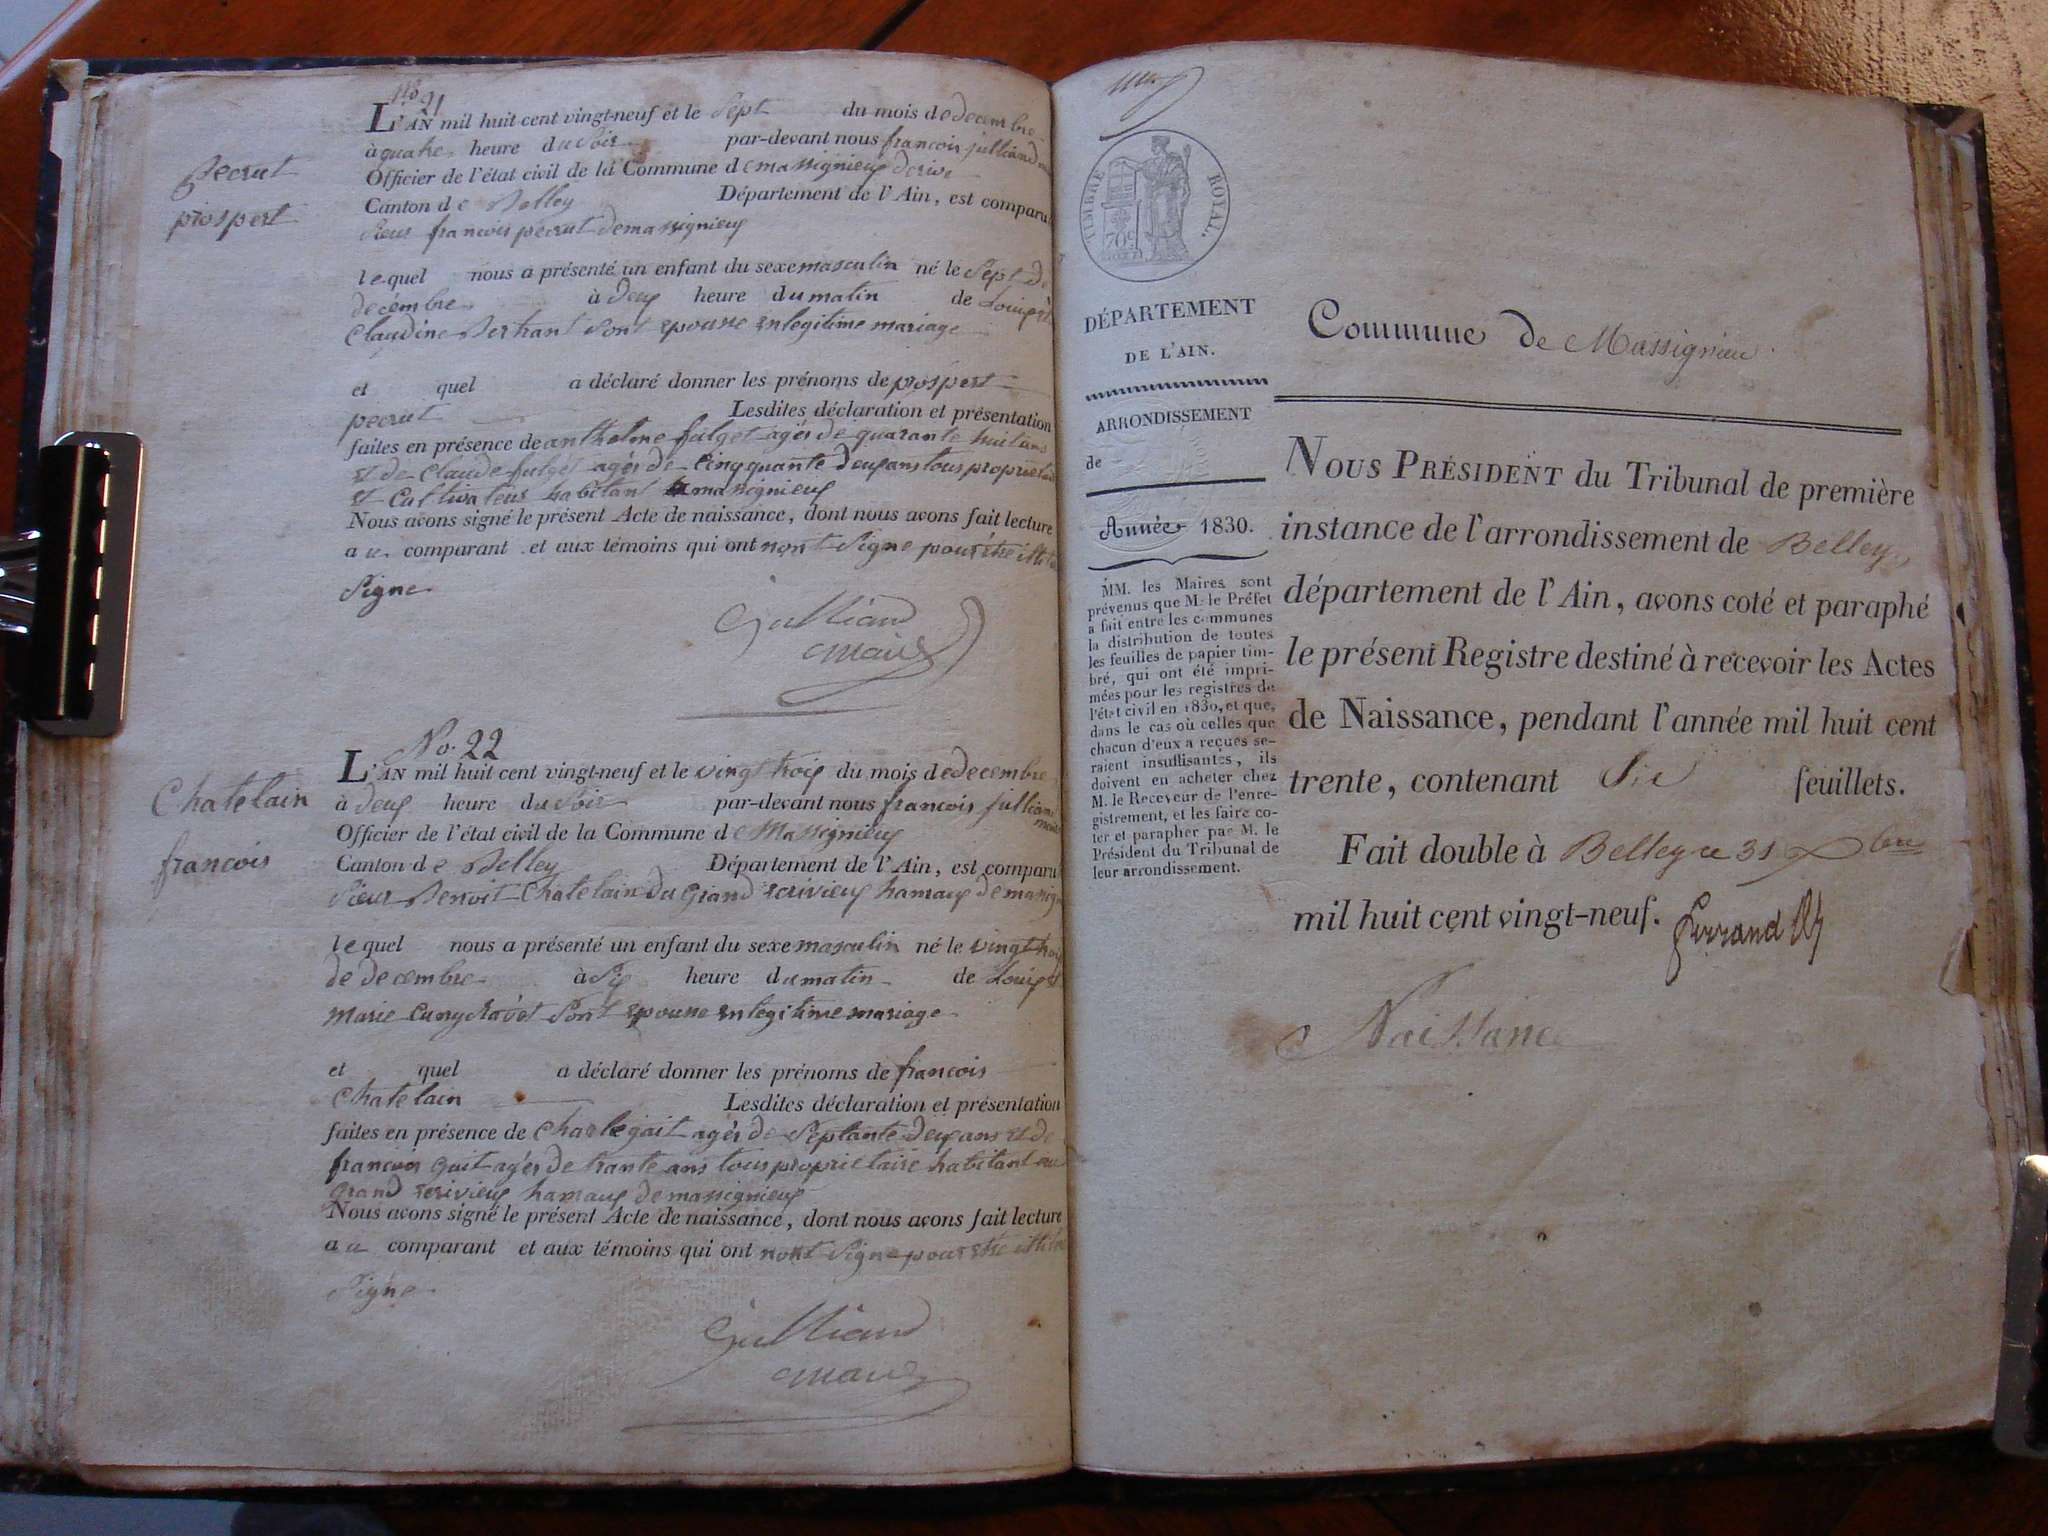 No 21
L'AN mil huit cent vingt-neuf et le Sept du mois de decembre
à quatre heure du Soir par-devant nous francois julliand
Officier de l'état civil de la Commune de massignieux de rive
Canton de Belley Département de l'Ain, est comparu
Sieur francois pecrut de massignieux
pecrut
prospert
lequel nous a présenté un enfant du sexe masculin né le Sept de
decémbre à deux heure du matin de
Claudine Bertrant Sont epouse en legitime mariage
et quel a déclaré donner les prénoms de prospert
pecrut Lesdites déclaration et présentation
faites en présence de anthelme fulget agés de quarante huit ans
et de Claude fulget agés de Cinqquante deux ans tous proprietaire
et Cultivateur habitant massignieux
Nous avons signé le présent Acte de naissance, dont nous avons fait lecture
au comparant et aux témoins qui ont nont Signe pour être
Signe
Julliand
maire
No. 22
L'AN mil huit cent vingt-neuf et le vingt trois du mois de decembre
à deux heure du Soir par-devant nous francois julliand
maire
Officier de l'état civil de la Commune de Massignieux
Canton de Belley Département de l'Ain, est comparu
Sieur Benoit Chatelain du Grand ecrivieux hamaux de massign
Chatelain
francois
lequel nous a présenté un enfant du sexe masculin né le vingt trois
de decembre à Six heure du matin de
marie Sont epouse en legitime mariage
et quel a déclaré donner les prénoms de francois
Chatelain Lesdites déclaration et présentation
faites en présence de Charle goit agés de Septante deux ans et de
francois goit agés de trante ans tous proprietaire habitant au
grand ecrivieux hamaux de massignieux
Nous avons signé le présent Acte de naissance, dont nous avons fait lecture
au comparant et aux témoins qui ont nont Signe pour etre
Signe
Julliand
maire
TIMBRE ROYAL.
70c
DÉPARTEMENT
DE L'AIN.
ARRONDISSEMENT
de
Année 1830.
MM. les Maires sont
prévenus que M. le Préfet
a fait entre les communes
la distribution de toutes
les feuilles de papier tim-
bré, qui ont été impri-
mées pour les registres de
l'état civil en 1830, et que,
dans le cas où celles que
chacun d'eux a reçues se-
raient insuffisantes, ils
doivent en acheter chez
M. le Receveur de l'enre-
gistrement, et les faire co-
ter et parapher par M. le
Président du Tribunal de
leur arrondissement.
Commune de Massignieu
NOUS PRÉSIDENT du Tribunal de première
instance de l'arrondissement de Belley,
département de l'Ain, avons coté et paraphé
le présent Registre destiné à recevoir les Actes
de Naissance, pendant l'année mil huit cent
trente, contenant Six feuillets.
Fait double à Belley ce 31 Xbre
mil huit cent vingt-neuf.
Ferrand
Naissance